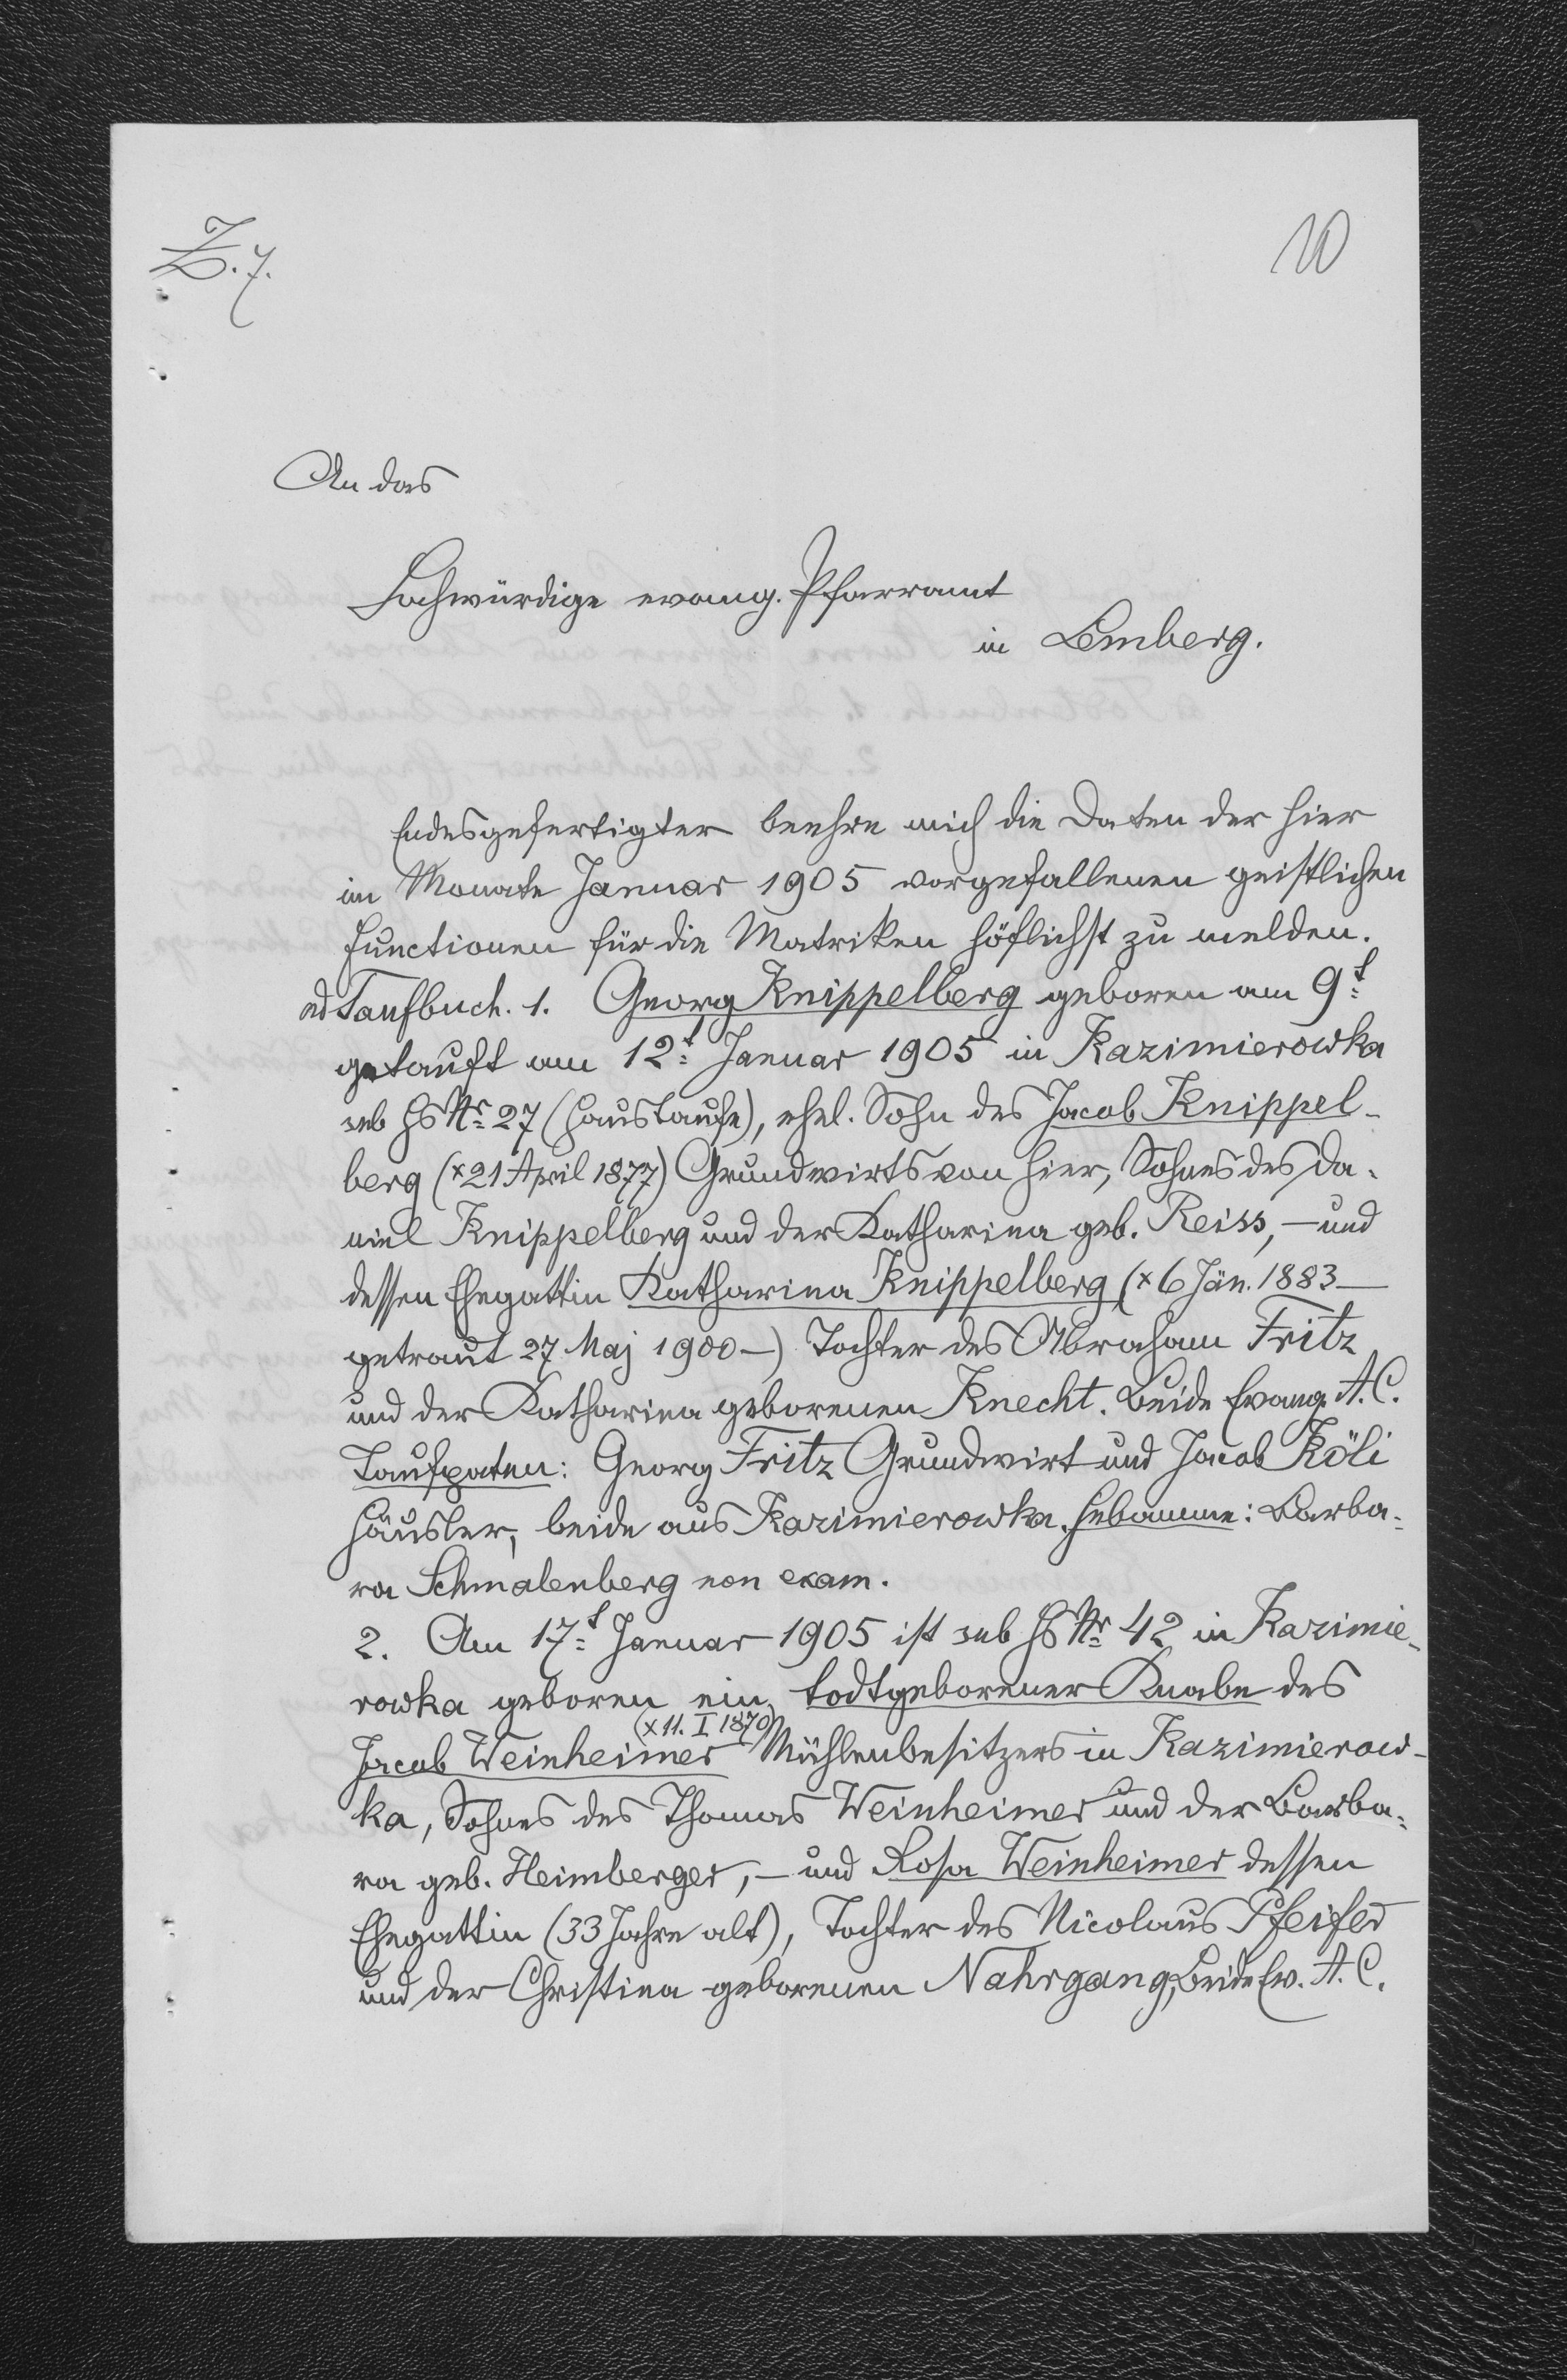 Z. 7.
10
An das
Hochwürdige evang. Pfarramt
in Lemberg.
Endesgefertigter beehre mich die Daten der hier
im Monate Januar 1905 vorgefallenen geistlichen
Functionen für die Matriken höflichst zu melden.
ad Taufbuch. 1. Georg Knippelberg geboren am 9t
getauft am 12t Januar 1905 in Kazimierowka
sub Hs Nr 27 (Haustaufe), ehel. Sohn des Jacob Knippel-
berg (x 21 April 1877) Grundwirts von hier, Sohnes des Da-
niel Knippelberg und der Katharina geb. Reiss, – und
dessen Ehegattin Katharina Knippelberg (x 6 Jän. 1883 –
getraut 27 Maj 1900 –) Tochter des Abraham Fritz
und der Katharina geborenen Knecht. Beide Evang. A. C.
Taufpaten: Georg Fritz Grundwirt und Jacob Köli
Häusler, beide aus Kazimierowka. Hebamme: Barba-
ra Schmalenberg non exam.
2. Am 17t Januar 1905 ist sub Hs Nr 42 in Kazimie-
rowka geboren ein todtgeborener Knabe des
(x 11. I 1870)
Jacob Weinheimer Mühlenbesitzers in Kazimierow-
ka, Sohnes des Thomas Weinheimer und der Barba-
ra geb. Heimberger, – und Rosa Weinheimer dessen
Ehegattin (33 Jahre alt), Tochter des Nicolaus Pfeifer
und der Christina geborenen Nahrgang, Beide Ev. A. C.